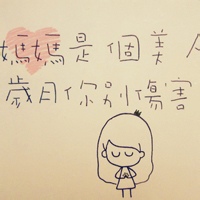 媽媽是個美人
歲月你別傷害